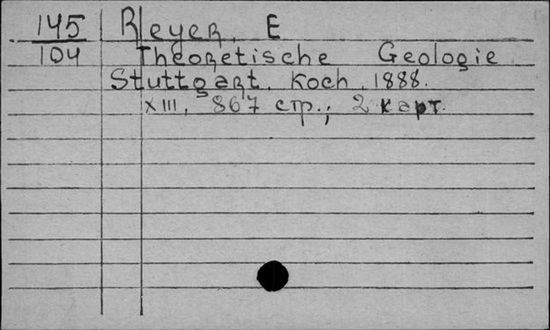 145 Reyer, E
104 Theoretische Geologie
Stuttgart. Koch, 1888.
XIII, 867 стр.; 2 карт.